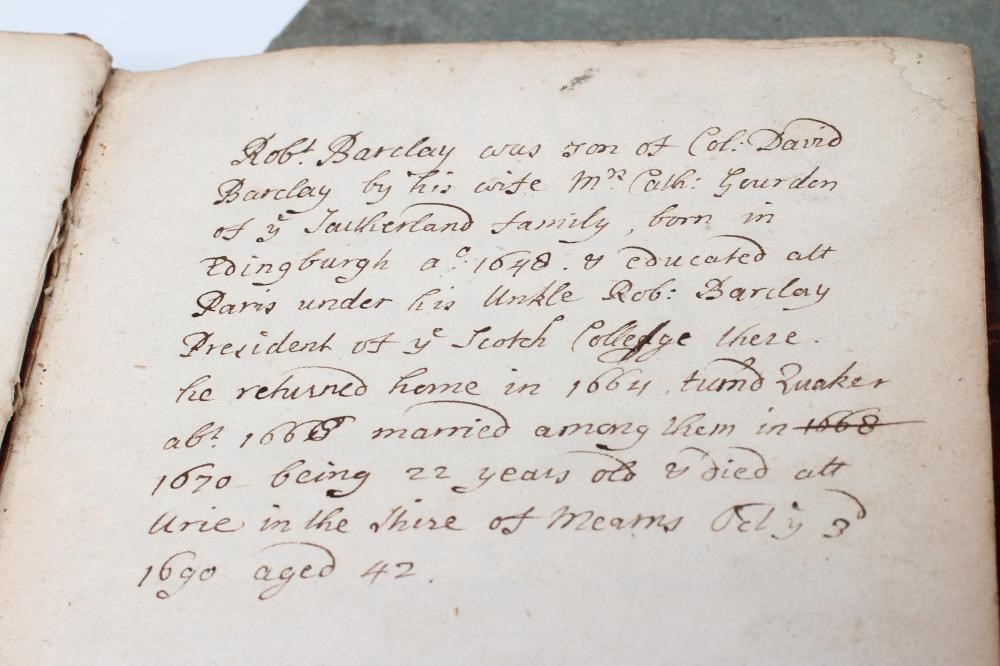 Robt. Barclay was son of Col: David
Barclay by his wife Mrs Cath: Gourden
of ye Sutherland family, born in
Edingburgh ao. 1648. & educated att
Paris under his Unkle Rob: Barclay
President of ye Scotch Colledge there.
he returned home in 1664. turn'd Quaker
abt. 1666 married among them in ~~1668~~
1670 being 22 years old & died att
Urie in the Shire of Mearns Oct ye 3d
1690 aged 42.